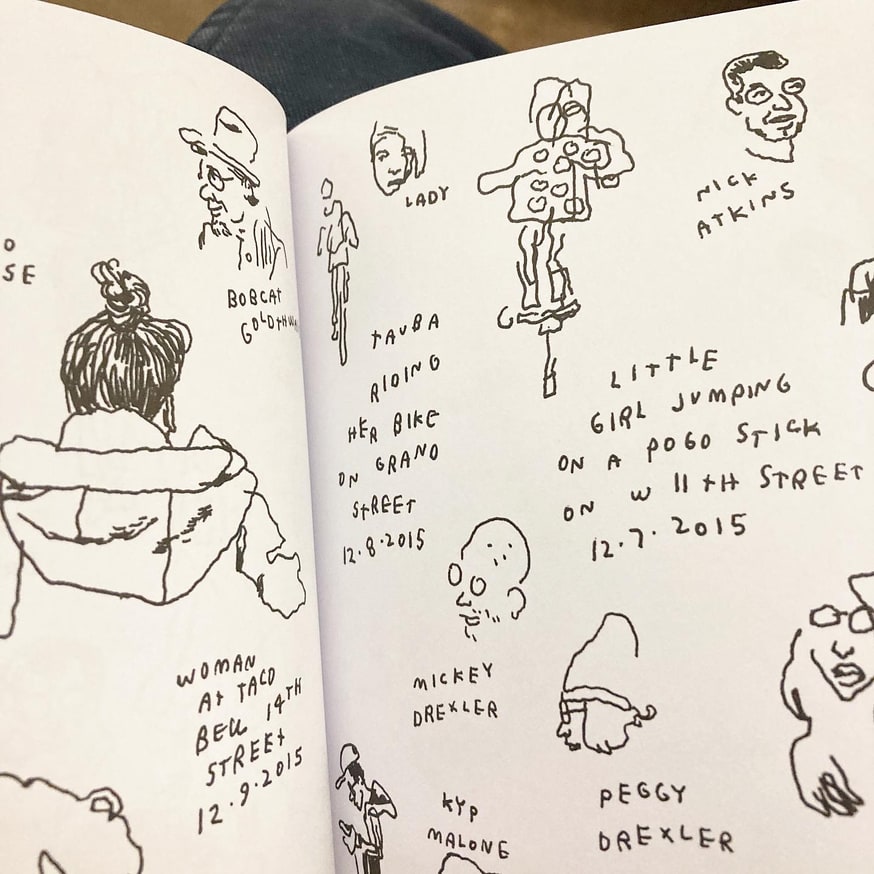 O
SE
BOBCAT
WOMAN
AT TACO
BELL 14TH
STREET
12.9.2015
LADY
TAUBA
RIDING
HER BIKE
ON GRAND
STREET
12.8.2015
NICK
ATKINS
LITTLE
GIRL JUMPING
ON A POGO STICK
ON W 11TH STREET
12.7.2015
MICKEY
DREXLER
KYP
MALONE
PEGGY
DREXLER